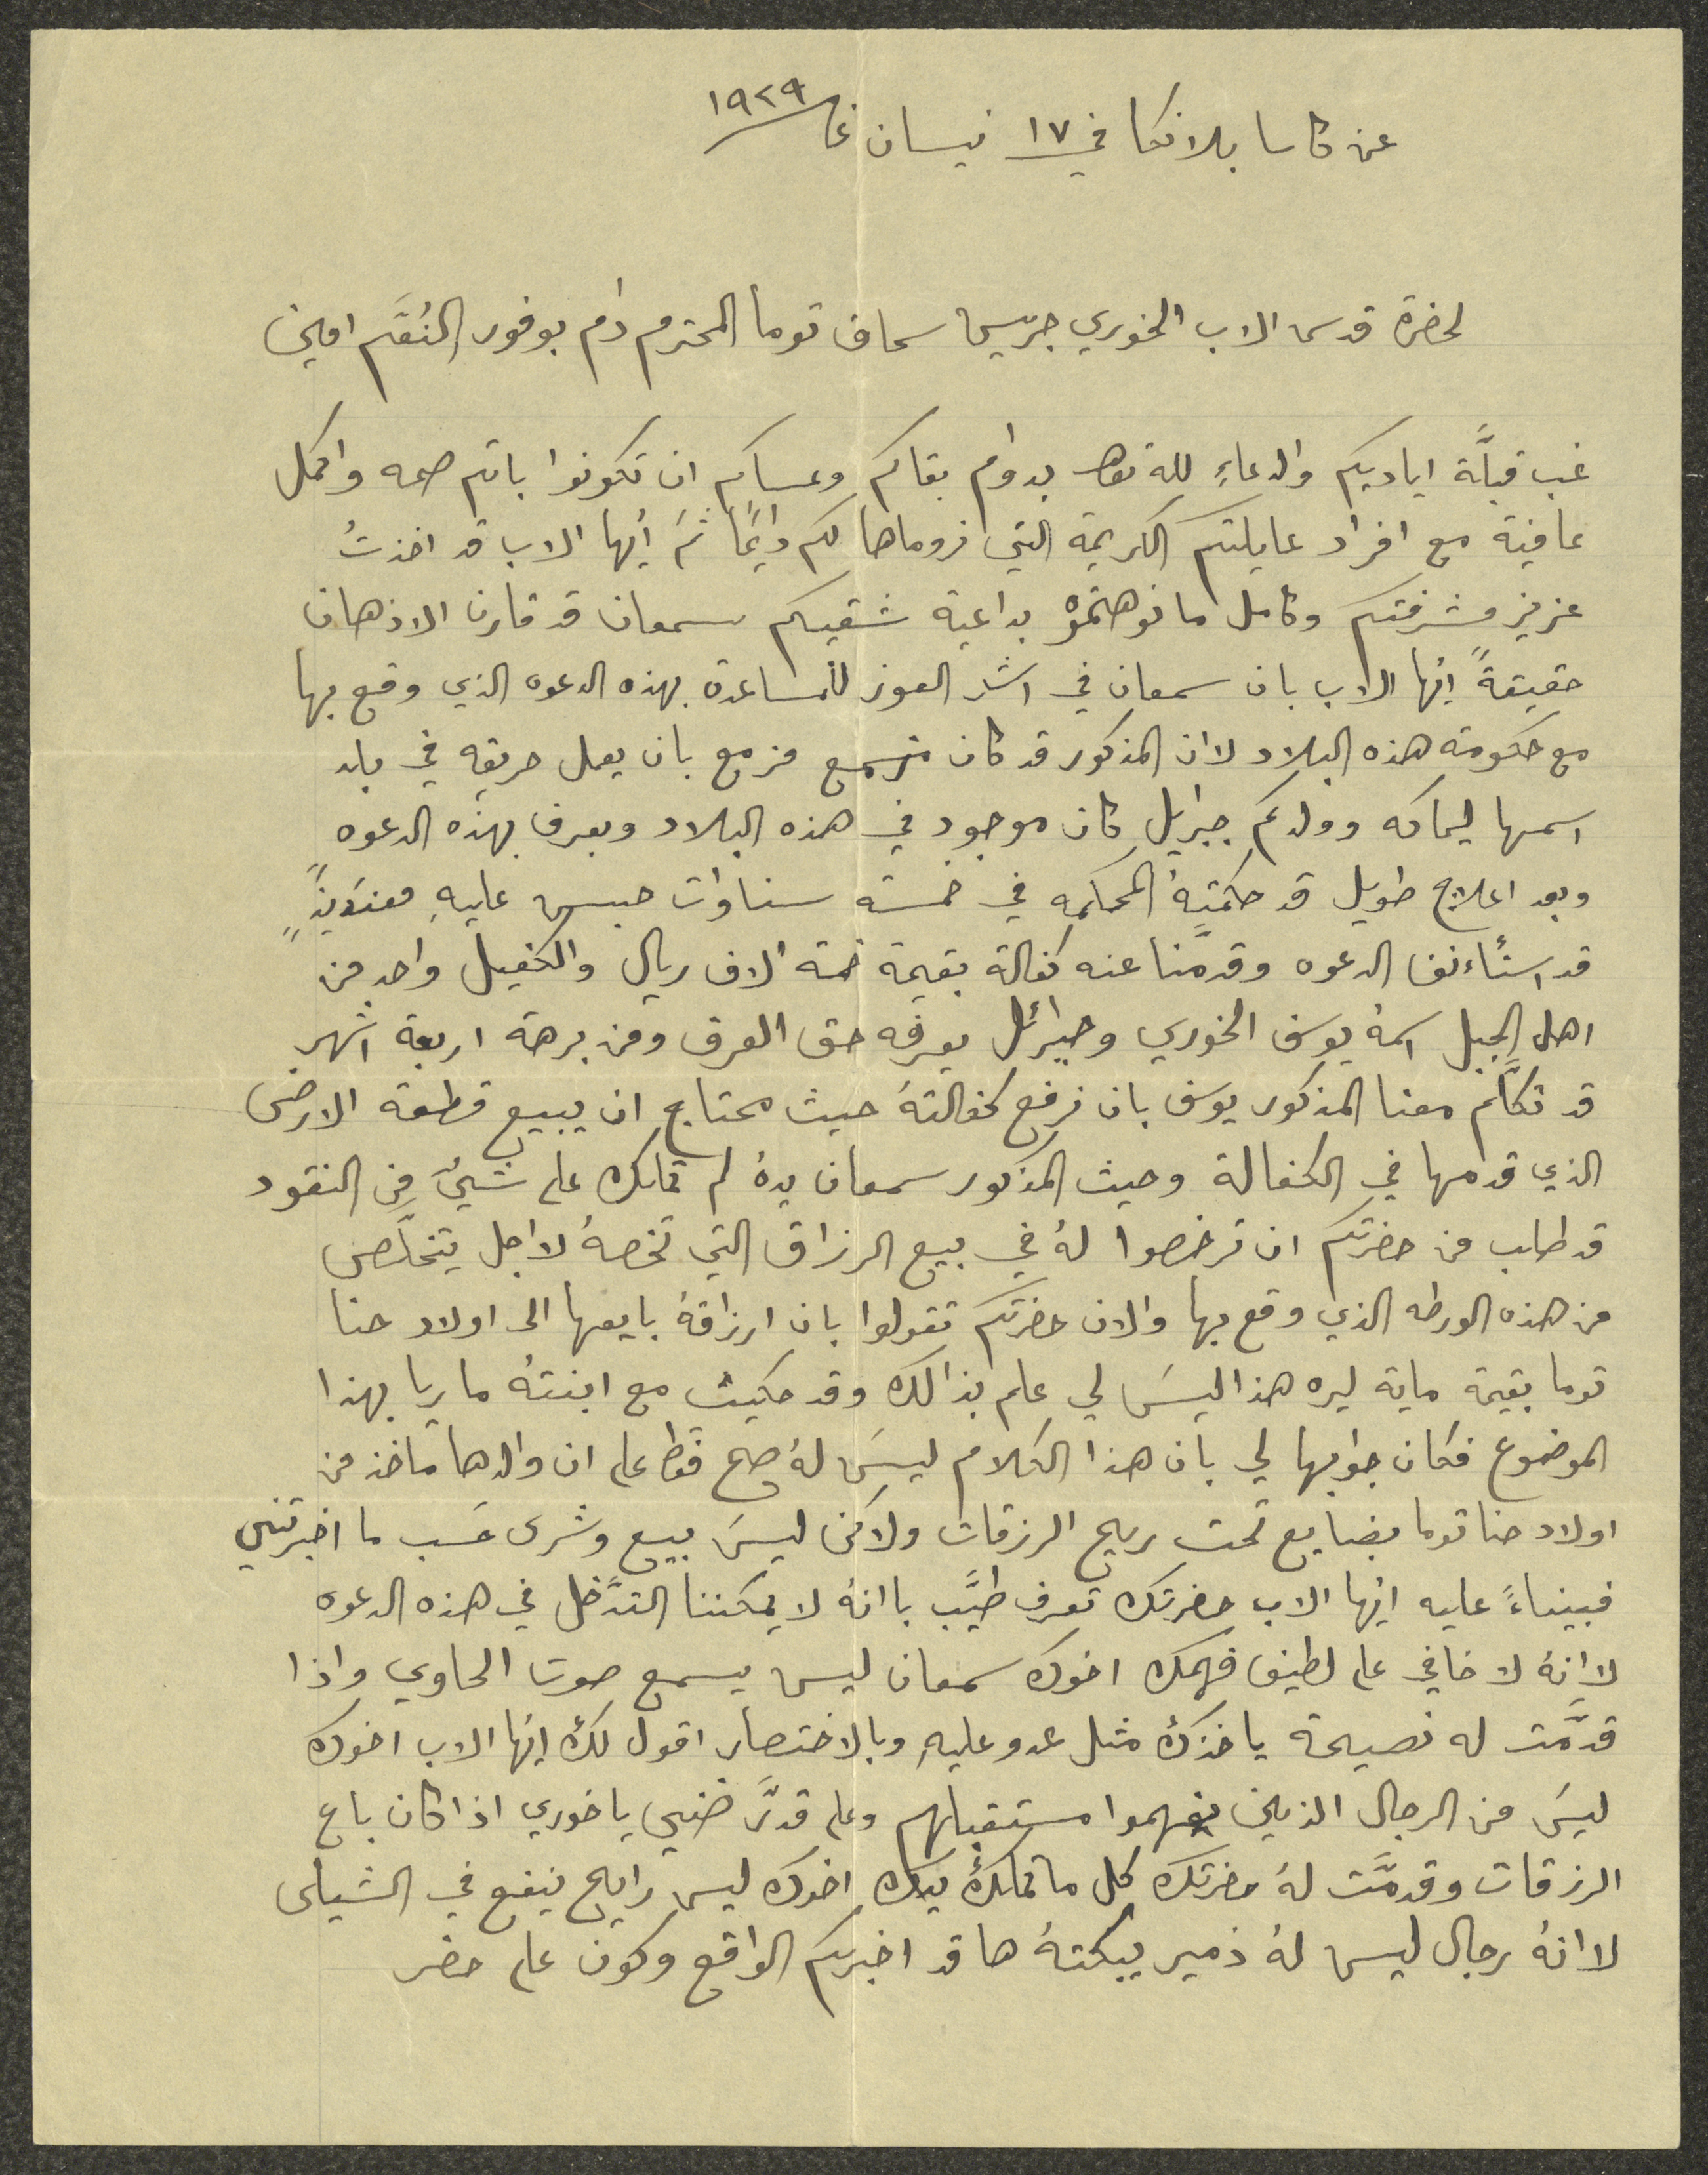 عن كاسا بلانكا في ١٧ نيسان غ ١٩٢٩
لحضرة قدس الاب الخوري جريس سمعان توما المحترم دام بوفور النُعَّم امين
غب قبلَّة اياديكم والدعاءِ لله تعا بدوام بقاكم وعساكم ان تكونوا باتم صحه واكمل
عافية مع افراد عايلتكم الكريمة التي نروماها لكم دايمًا ثمَ ايُها الاب قد اخذتُ
عزيز مشرفتكم وكامل ما نوهتموْ بداعية شقيكم سمعان قد قارن الاذهان
حقيقةً ايُها الاب بان سمعان في اشد العوز للمساعدة بهذه الدعوه الذي وقع بها
مع حكومة هذه البلاد لاان المذكور قد كان مزمع بان يعمل حريقه في بلد
اسمها ليماكه وولدكم جبرايل كان موجود في هذه البلاد ويعرف بهذه الدعوه
وبعد اعلاج طويل قد حكمتهُ المحكمه في خمسة سناوات حبس عليهِ فعندَيذٍ
قد استأنف الدعوه وقدمَّنا عنه كفالة بقيمة خمسة الاف ريال والكفيل واحد من
اهل الجبل اسمهُ يوسف الخوري وجبرائل يعرفه حق العرف ومن برهة اربعة اشهر
قد تكلَّم معنا المذكور يوسف بان نرفع كفالتهُ حيث محتاج ان يبيع قطعة الارض
الذي قدمها في الكفالة وحيث المذكور سمعان يدهُ لم تملك على شيئ من النقود
قد طلب من حضرتكم ان ترخصوا لهُ في بيع الرزاق التي تخصهُ لاجل يتخلَّص
من هذه الورطه الذي وقع بها والان حضرتكم تقولوا بان ارزاقهُ بايعها الى اولاد حنا
توما بقيمة ماية ليره هذا ليسَ لي علم بذالك وقد حكيت مع ابنتهُ ماريا بهذا
الموضوع فكان جوابها لي بان هذا الكلام ليسَ لهُ صح قط على ان والدها ماخذ من
اولاد حنا توما بضايع تحت ريح الرزقات ولاكن ليسَ بيع وشرى حَسب ما اخبرتني
فبيناءً عليه ايُها الاب حضرتك تعرف طيَّب باانهُ لا يمكننا التدَّخل في هذه الدعوه
لاانهُ لا خافي على لطيف فهمك اخوك سمعان ليس يسمع صوت الحاوي واذا
قدَّمت له نصيحة ياخذكْ مثل عدو عليهِ وبالاختصار اقول لكْ ايُها الاب اخوك
ليسَ من الرجال الذين يفهموا مستقبلهم وعلى قدَّر ضني يا خوري اذا كان باع
الرزقات وقدمَّت لهُ حضرتك كل ما تملكهُ يدك اخوك ليس رايح ينفع في الشيلى
لاانهُ رجال ليس لهُ ذمير يبكتهُ ها قد اخبرتكم الواقع وكون على حضر